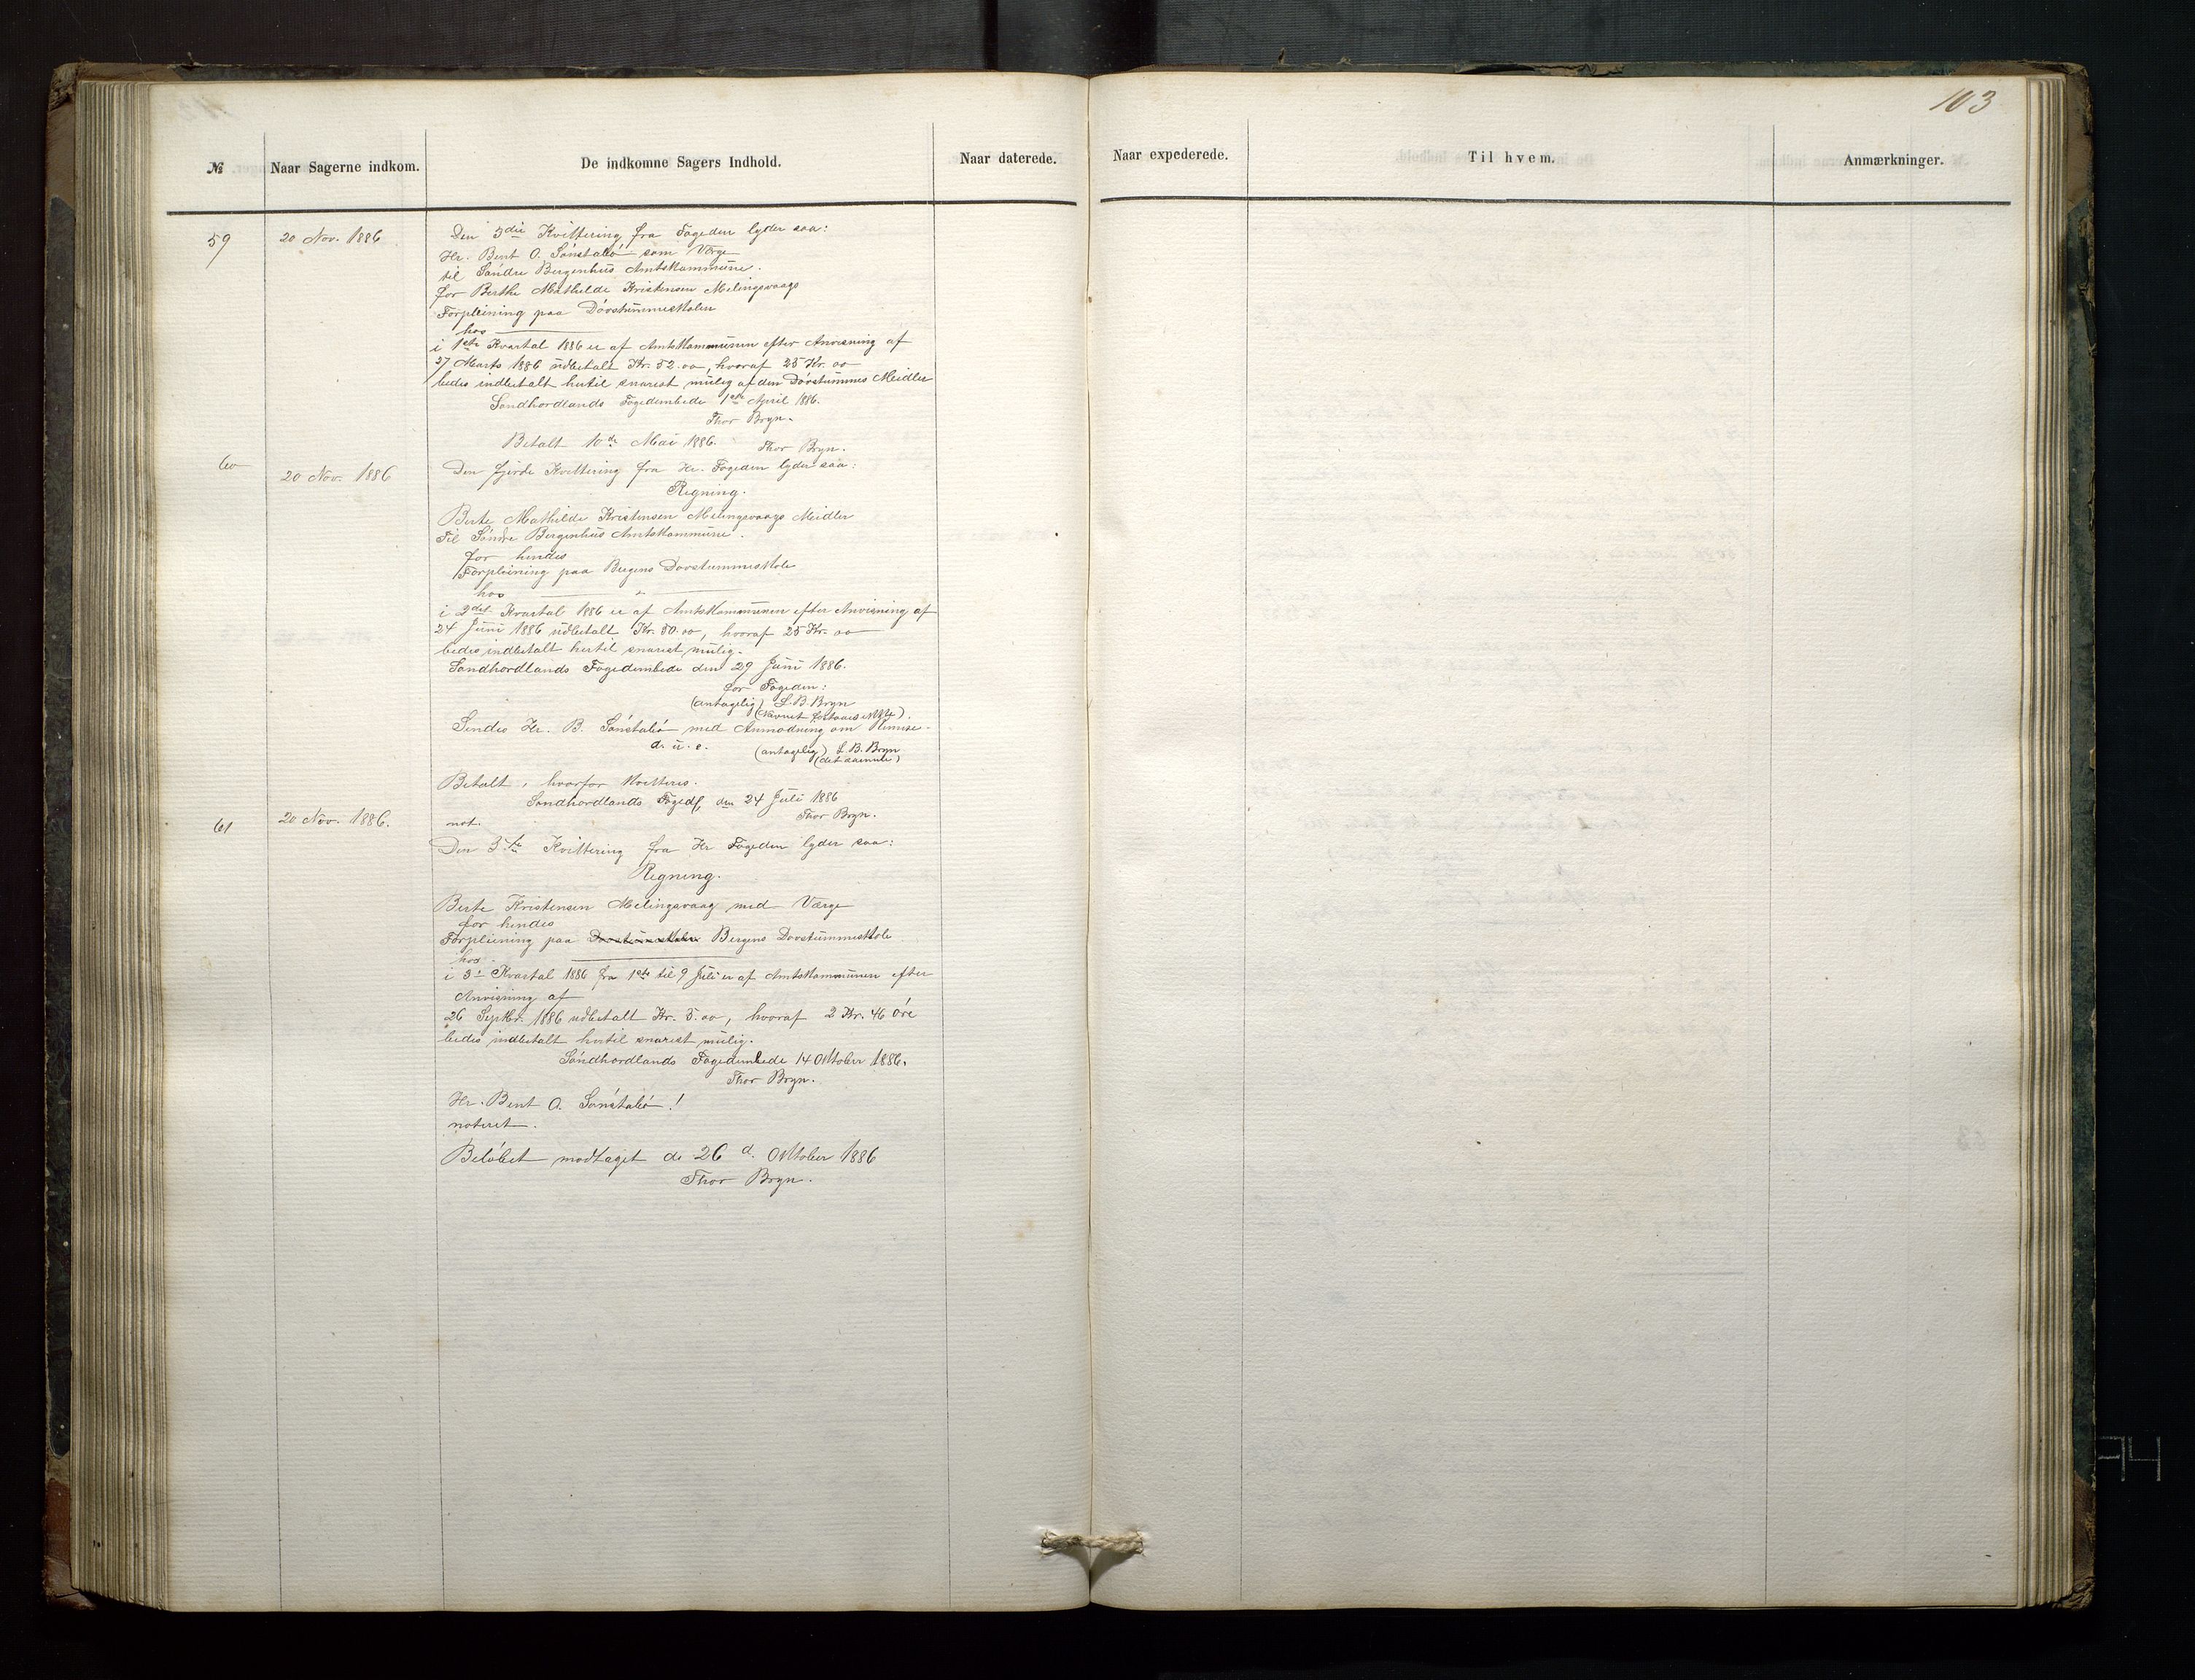 103
№ Naar Sagerne indkom. De indkomne Sagers Indhold. Naar daterede. Naar expederede. Til hvem. Anmærkninger.
59 20 Nov. 1886 Den 3die Kvittering fra Fogeden lyder saa:
Hr. Bent O. Sönstabö som Værge
til Söndre Bergenhus Amtskommune.
for Berthe Mathilde Kristensen Melingsvaags
Forpleining paa Dövstummeskolen
hos
i 1ste Kvartal 1886 er af Amtskommunen efter Anvisning af
27 Marts 1886 udbetalt Kr. 52.00, hvoraf 25 Kr. 00
bedes indbetalt hertil snarest mulig af den Dövstummes Meidler
Söndhordlands Fogedembede 1ste April 1886.
Thor Bryn.
Betalt 10de Mai 1886. Thor Bryn.
60 20 Nov. 1886 Den fjerde Kvittering fra Hr. Fogeden lyder saa:
Regning.
Berte Mathilde Kristensen Melingsvaags Meidler
Til Söndre Bergenhus Amtskommune.
for hendes
Forpleining paa Bergens Dovstummeskole
hos
i 2det Kvartal 1886 er af Amtskommunen efter Anvisning af
24 Juni 1886 udbetalt Kr. 50.00, hvoraf 25 Kr. 00
bedes indbetalt hertil snarest mulig.
Söndhordlands Fogedembede den 29 Juni 1886.
for Fogeden:
(antagelig) L. B. Bryn
(Navnet forstaaes ikke).
Sendes Hr. B. Sönstabö med Anmodning om Remise.
d. u. s. (antagelig) L. B. Bryn
(det samme)
Betalt, hvorfor kvitteres.
Söndhordlands Fogedf. den 24 Juli 1886
not. Thor Bryn.
61 20 Nov. 1886. Den 5te Kvittering fra Hr Fogeden lyder saa:
Regning.
Berte Kristensen Melingsvaag med Værge
for hendes
Forpleining paa Dovstumeskolen Bergens Dovstummeskole
hos
i 3d Kvartal 1886 fra 1ste til 9 Juli er af Amtskommunen efter
Anvisning af
26 Septbr. 1886 udbetalt Kr. 5.00, hvoraf 2 Kr. 46 Öre
bedes indbetalt hertil snarest mulig.
Söndhordlands Fogedembede 14 Oktober 1886.
Thor Bryn.
Hr. Bent O. Sönstabö!
noteret.
Belöbet modtaget de 26 d. Oktober 1886
Thor Bryn.